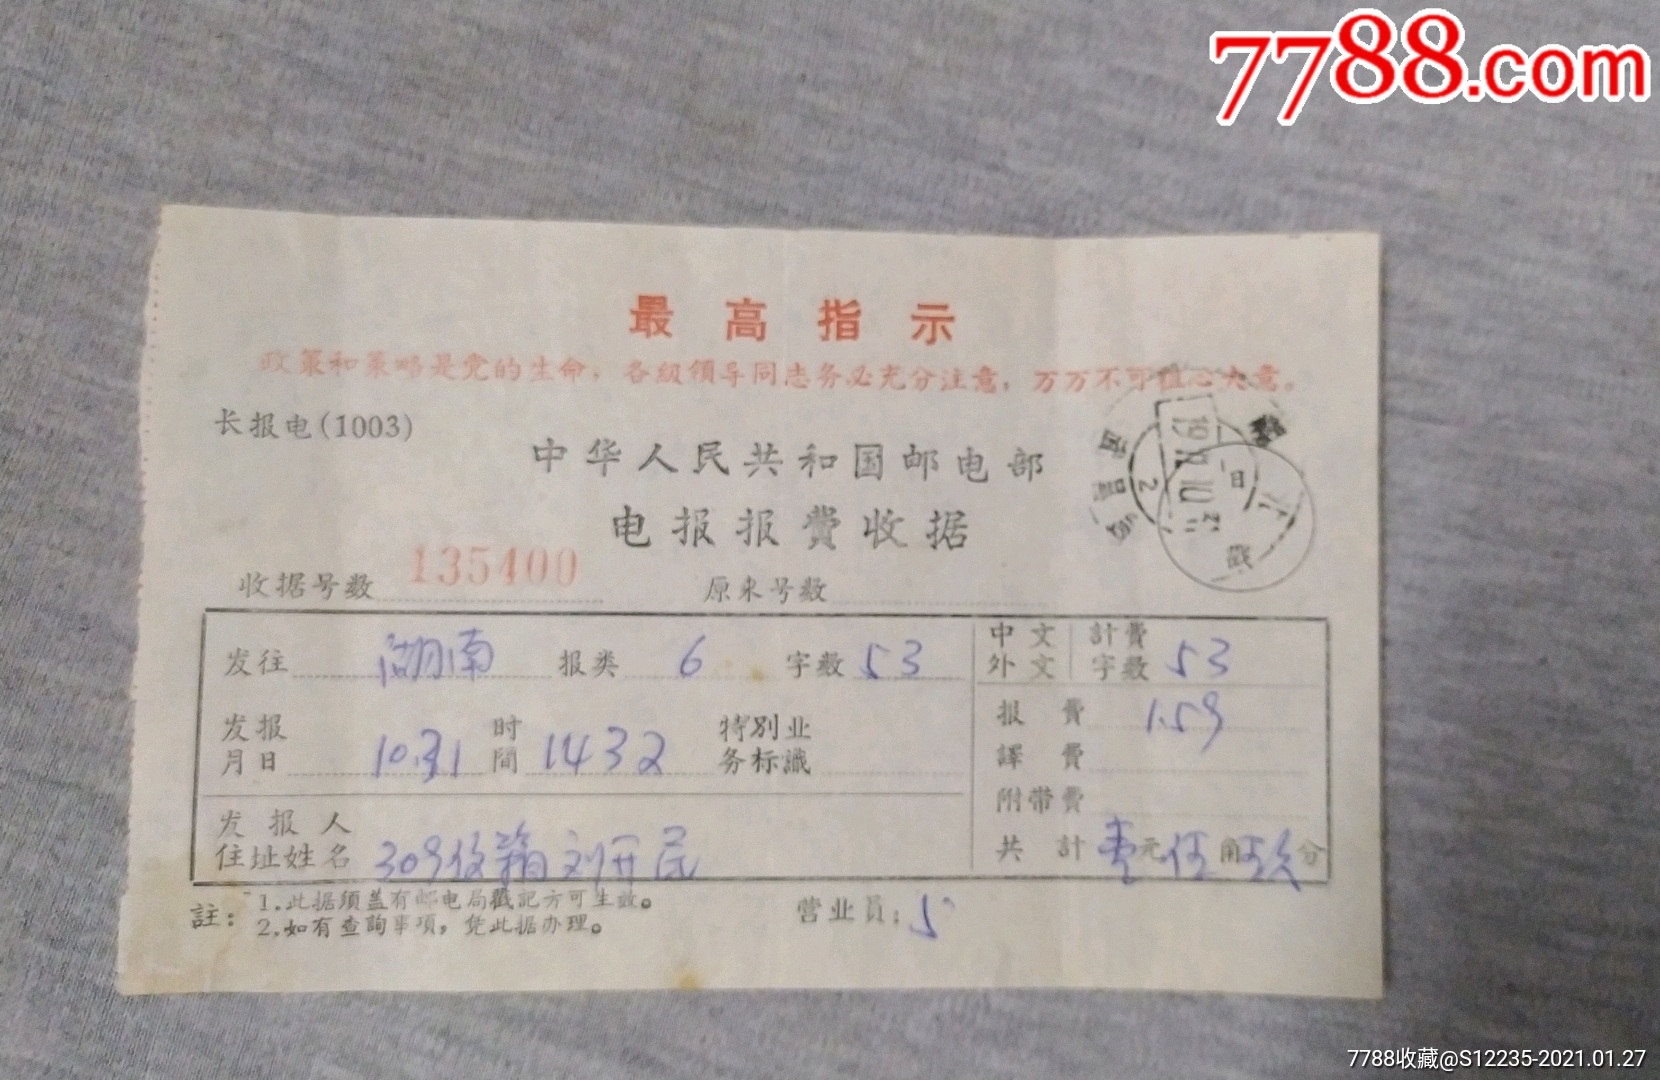 7788.com
最高指示
政策和策略是党的生命，各級領导同志务必充分注意，万万不可粗心大意。
长报电(1003)
中华人民共和国邮电部
电报报費收据
收据号数 135400 原来号数
发往 湖南 报类 6 字数 53
中文 外文 計費字数 53
发报月日 10.31 时間 1432 特别业务标識
报費 1.59
譯費
附带費
发报人住址姓名 309 刘开民
共計 壹元伍角玖分
註：1.此据須盖有邮电局戳記方可生效。
2.如有查詢事項，凭此据办理。
营业員：
7788收藏@S12235-2021.01.27